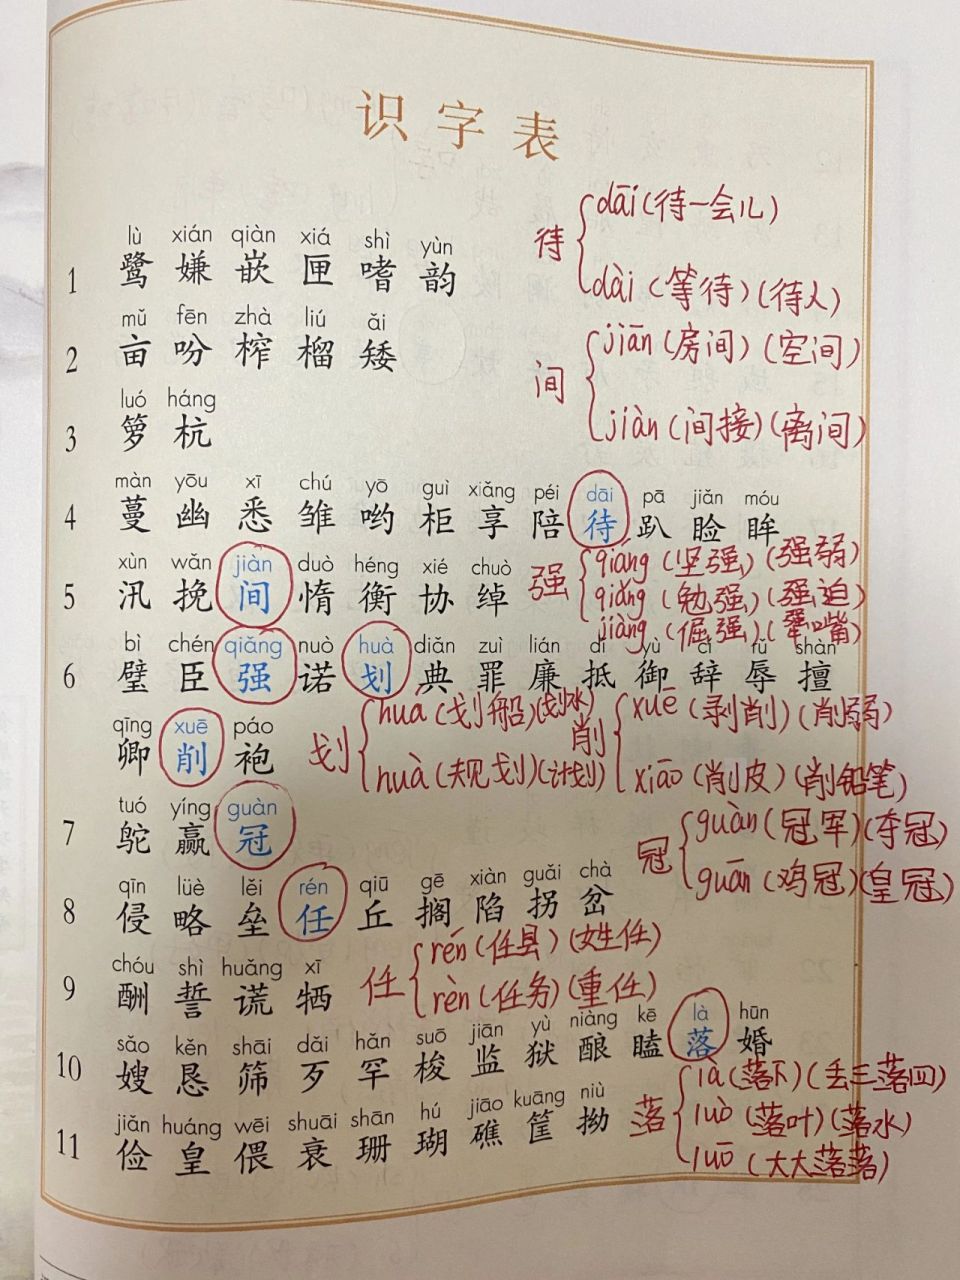 识字表
lù xián qiàn xiá shì yùn
1 鹭 嫌 嵌 匣 嗜 韵
待 dāi(待一会儿)
dài(等待)(待人)
mǔ fēn zhà liú ǎi
2 亩 吩 榨 榴 矮
间 jiān(房间)(空间)
jiàn(间接)(离间)
luó háng
3 箩 杭
màn yōu xī chú yō guì xiǎng péi dāi pā jiǎn móu
4 蔓 幽 悉 雏 哟 柜 享 陪 待 趴 睑 眸
xùn wǎn jiàn duò héng xié chuò
5 汛 挽 间 惰 衡 协 绰
强 qiáng(坚强)(强弱)
qiǎng(勉强)(强迫)
jiàng(倔强)(犟嘴)
bì chén qiǎng nuò huà diǎn zuì lián dǐ yù cí rǔ shàn
6 璧 臣 强 诺 划 典 罪 廉 抵 御 辞 辱 擅
qīng xuē páo
卿 削 袍
划 huá(划船)(划水)
huà(规划)(计划)
削 xuē(剥削)(削弱)
xiāo(削皮)(削铅笔)
tuó yíng guàn
7 鸵 赢 冠
冠 guàn(冠军)(夺冠)
guān(鸡冠)(皇冠)
qīn lüè lěi rén qiū gē xiàn guǎi chà
8 侵 略 垒 任 丘 搁 陷 拐 岔
任 rén(任县)(姓任)
rèn(任务)(重任)
chóu shì huǎng xī
9 酬 誓 谎 牺
sǎo kěn shāi dǎi hǎn suō jiān yù niàng kē là hūn
10 嫂 恳 筛 歹 罕 梭 监 狱 酿 瞌 落 婚
落 là(落下)(丢三落四)
luò(落叶)(落水)
luō(大大落落)
jiǎn huáng wēi shuāi shān hú jiāo kuāng niù
11 俭 皇 偎 衰 珊 瑚 礁 筐 拗